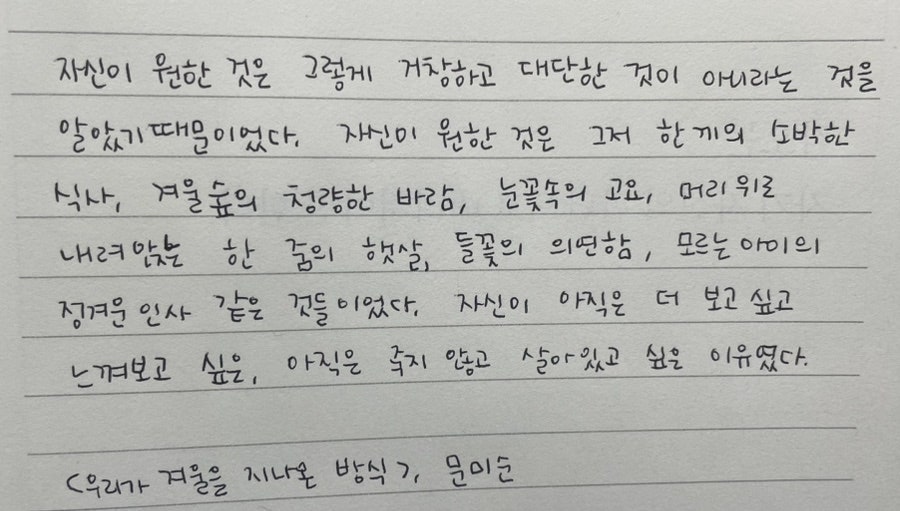 자신이 원한 것은 그렇게 거창하고 대단한 것이 아니라는 것을
알았기때문이었다. 자신이 원한 것은 그저 한 끼의 소박한
식사, 겨울숲의 청량한 바람, 눈꽃속의 고요, 머리위로
내려앉는 한 줌의 햇살, 들꽃의 의연함, 모르는아이의
정겨운인사 같은 것들이었다. 자신이 아직은 더 보고싶고
느껴보고 싶은, 아직은 죽지 않고 살아있고 싶은 이유였다.
<우리가 겨울을 지나온 방식>, 문미순